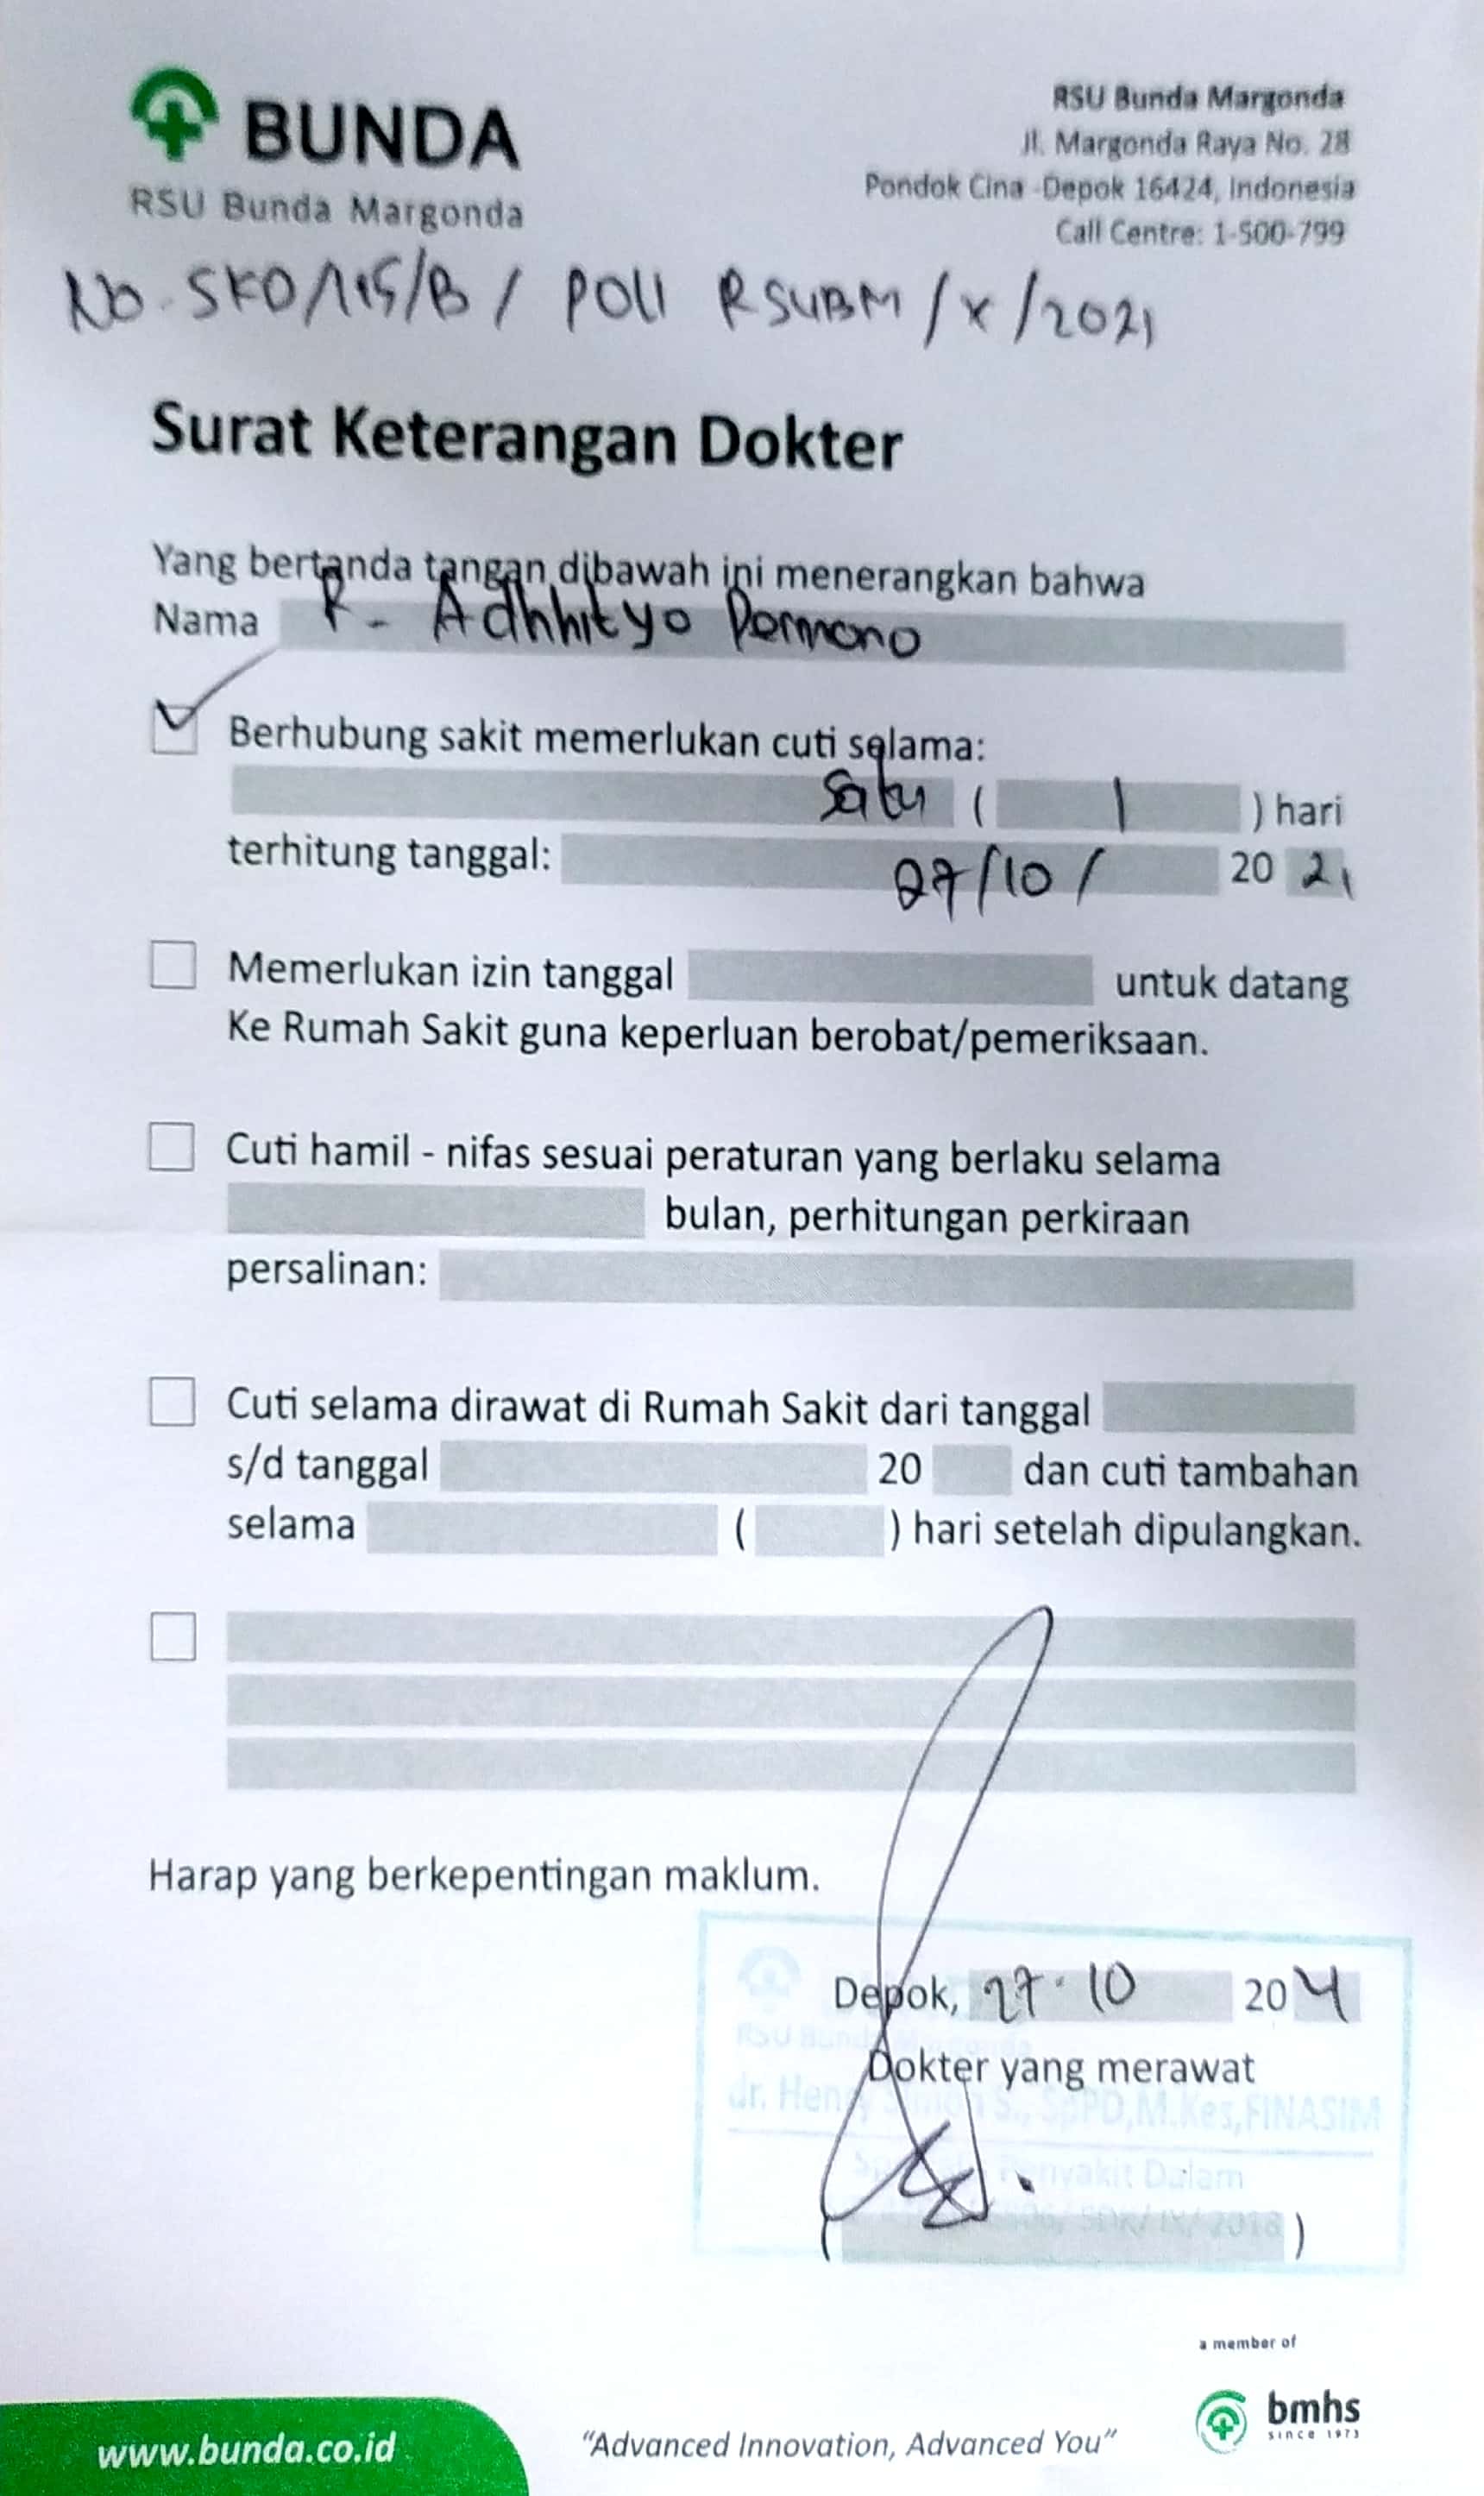 BUNDA
RSU Bunda Margonda
RSU Bunda Margonda
Jl. Margonda Raya No. 28
Pondok Cina -Depok 16424, Indonesia
Call Centre: 1-500-799
No. SKD/115/B / POLI RSUBM /X /2021
Surat Keterangan Dokter
Yang bertanda tangan dibawah ini menerangkan bahwa
Nama R. Adhhityo Permono
Berhubung sakit memerlukan cuti selama:
Satu ( 1 ) hari
terhitung tanggal: 27/10/ 20 21
Memerlukan izin tanggal untuk datang
Ke Rumah Sakit guna keperluan berobat/pemeriksaan.
Cuti hamil - nifas sesuai peraturan yang berlaku selama
bulan, perhitungan perkiraan
persalinan:
Cuti selama dirawat di Rumah Sakit dari tanggal
s/d tanggal 20 dan cuti tambahan
selama ( ) hari setelah dipulangkan.
Harap yang berkepentingan maklum.
Depok, 27.10 20 21
RSU Bunda Margonda
Dokter yang merawat
dr. Henry Simon S., SpPD,M.Kes,FINASIM
Penyakit Dalam
( SDK/IX/ 2018 )
a member of
bmhs
since 1973
www.bunda.co.id
"Advanced Innovation, Advanced You"